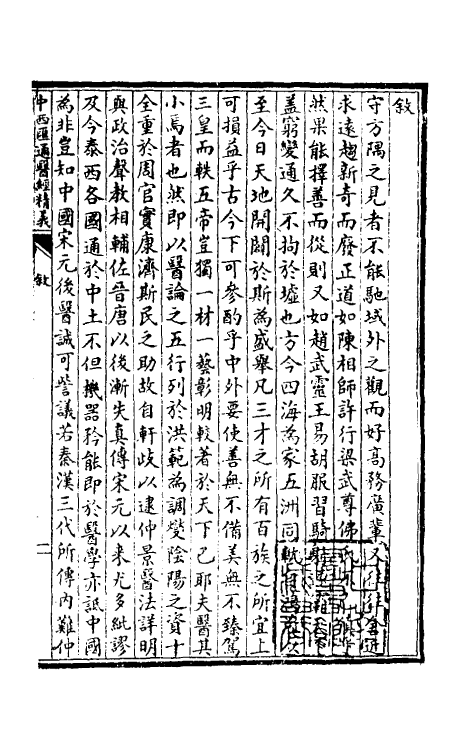 敘
守方隅之見者不能馳域外之觀而好高務廣輩又往往舍近
求遠趨新奇而廢正道如陳相師許行梁武尊佛
然果能擇善而從則又如趙武靈王易胡服習騎
蓋窮變通久不拘於墟也方今四海為家五洲同軌自
至今日天地開闢於斯為盛舉凡三才之所有百族之所宜上
可損益乎古今下可參酌乎中外要使善無不備美無不臻駕
三皇而軼五帝豈獨一材一藝彰明較著於天下已耶夫醫其
小焉者也然即以醫論之五行列於洪範為調燮陰陽之資十
全重於周官實康濟斯民之助故自軒歧以逮仲景醫法詳明
與政治聲教相輔佐晉唐以後漸失真傳宋元以来尤多紕謬
及今泰西各國通於中土不但機器矜能即於醫學亦詆中國
為非豈知中國宋元後醫誠可訾議若秦漢三代所傳內難仲
中西匯通醫經精義
敘
一